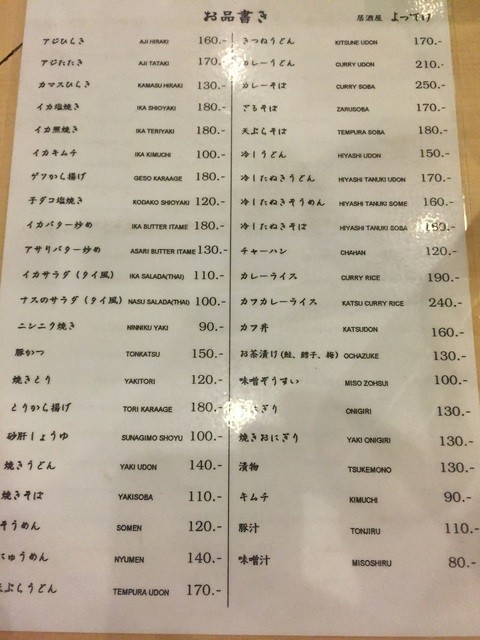 お品書き 居酒屋 よってけ
アジひらき AJI HIRAKI 160.-
アジたたき AJI TATAKI 170.-
カマスひらき KAMASU HIRAKI 130.-
イカ塩焼き IKA SHIOYAKI 180.-
イカ照焼き IKA TERIYAKI 180.-
イカキムチ IKA KIMUCHI 100.-
ゲソから揚げ GESO KARAAGE 180.-
子ダコ塩焼き KODAKO SHIOYAKI 120.-
イカバター炒め IKA BUTTER ITAME 180.-
アサリバター炒め ASARI BUTTER ITAME 130.-
イカサラダ(タイ風) IKA SALADA(THAI) 110.-
ナスのサラダ(タイ風) NASU SALADA(THAI) 100.-
ニンニク焼き NINNIKU YAKI 90.-
豚かつ TONKATSU 150.-
焼きとり YAKITORI 120.-
とりから揚げ TORI KARAAGE 180.-
砂肝しょうゆ SUNAGIMO SHOYU 100.-
焼きうどん YAKI UDON 140.-
焼きそば YAKISOBA 110.-
そうめん SOMEN 120.-
にゅうめん NYUMEN 140.-
天ぷらうどん TEMPURA UDON 170.-
きつねうどん KITSUNE UDON 170.-
カレーうどん CURRY UDON 210.-
カレーそば CURRY SOBA 250.-
ざるそば ZARUSOBA 170.-
天ぷらそば TEMPURA SOBA 180.-
冷しうどん HIYASHI UDON 150.-
冷したぬきうどん HIYASHI TANUKI UDON 170.-
冷したぬきそうめん HIYASHI TANUKI SOME 160.-
冷したぬきそば HIYASHI TANUKI SOBA
チャーハン CHAHAN 120.-
カレーライス CURRY RICE 190.-
カツカレーライス KATSU CURRY RICE 240.-
カツ丼 KATSUDON 160.-
お茶漬け(鮭、鱈子、梅) OCHAZUKE 130.-
味噌ぞうすい MISO ZOHSUI 100.-
にぎり ONIGIRI 130.-
焼きおにぎり YAKI ONIGIRI 130.-
漬物 TSUKEMONO 130.-
キムチ KIMUCHI 90.-
豚汁 TONJIRU 110.-
味噌汁 MISOSHIRU 80.-